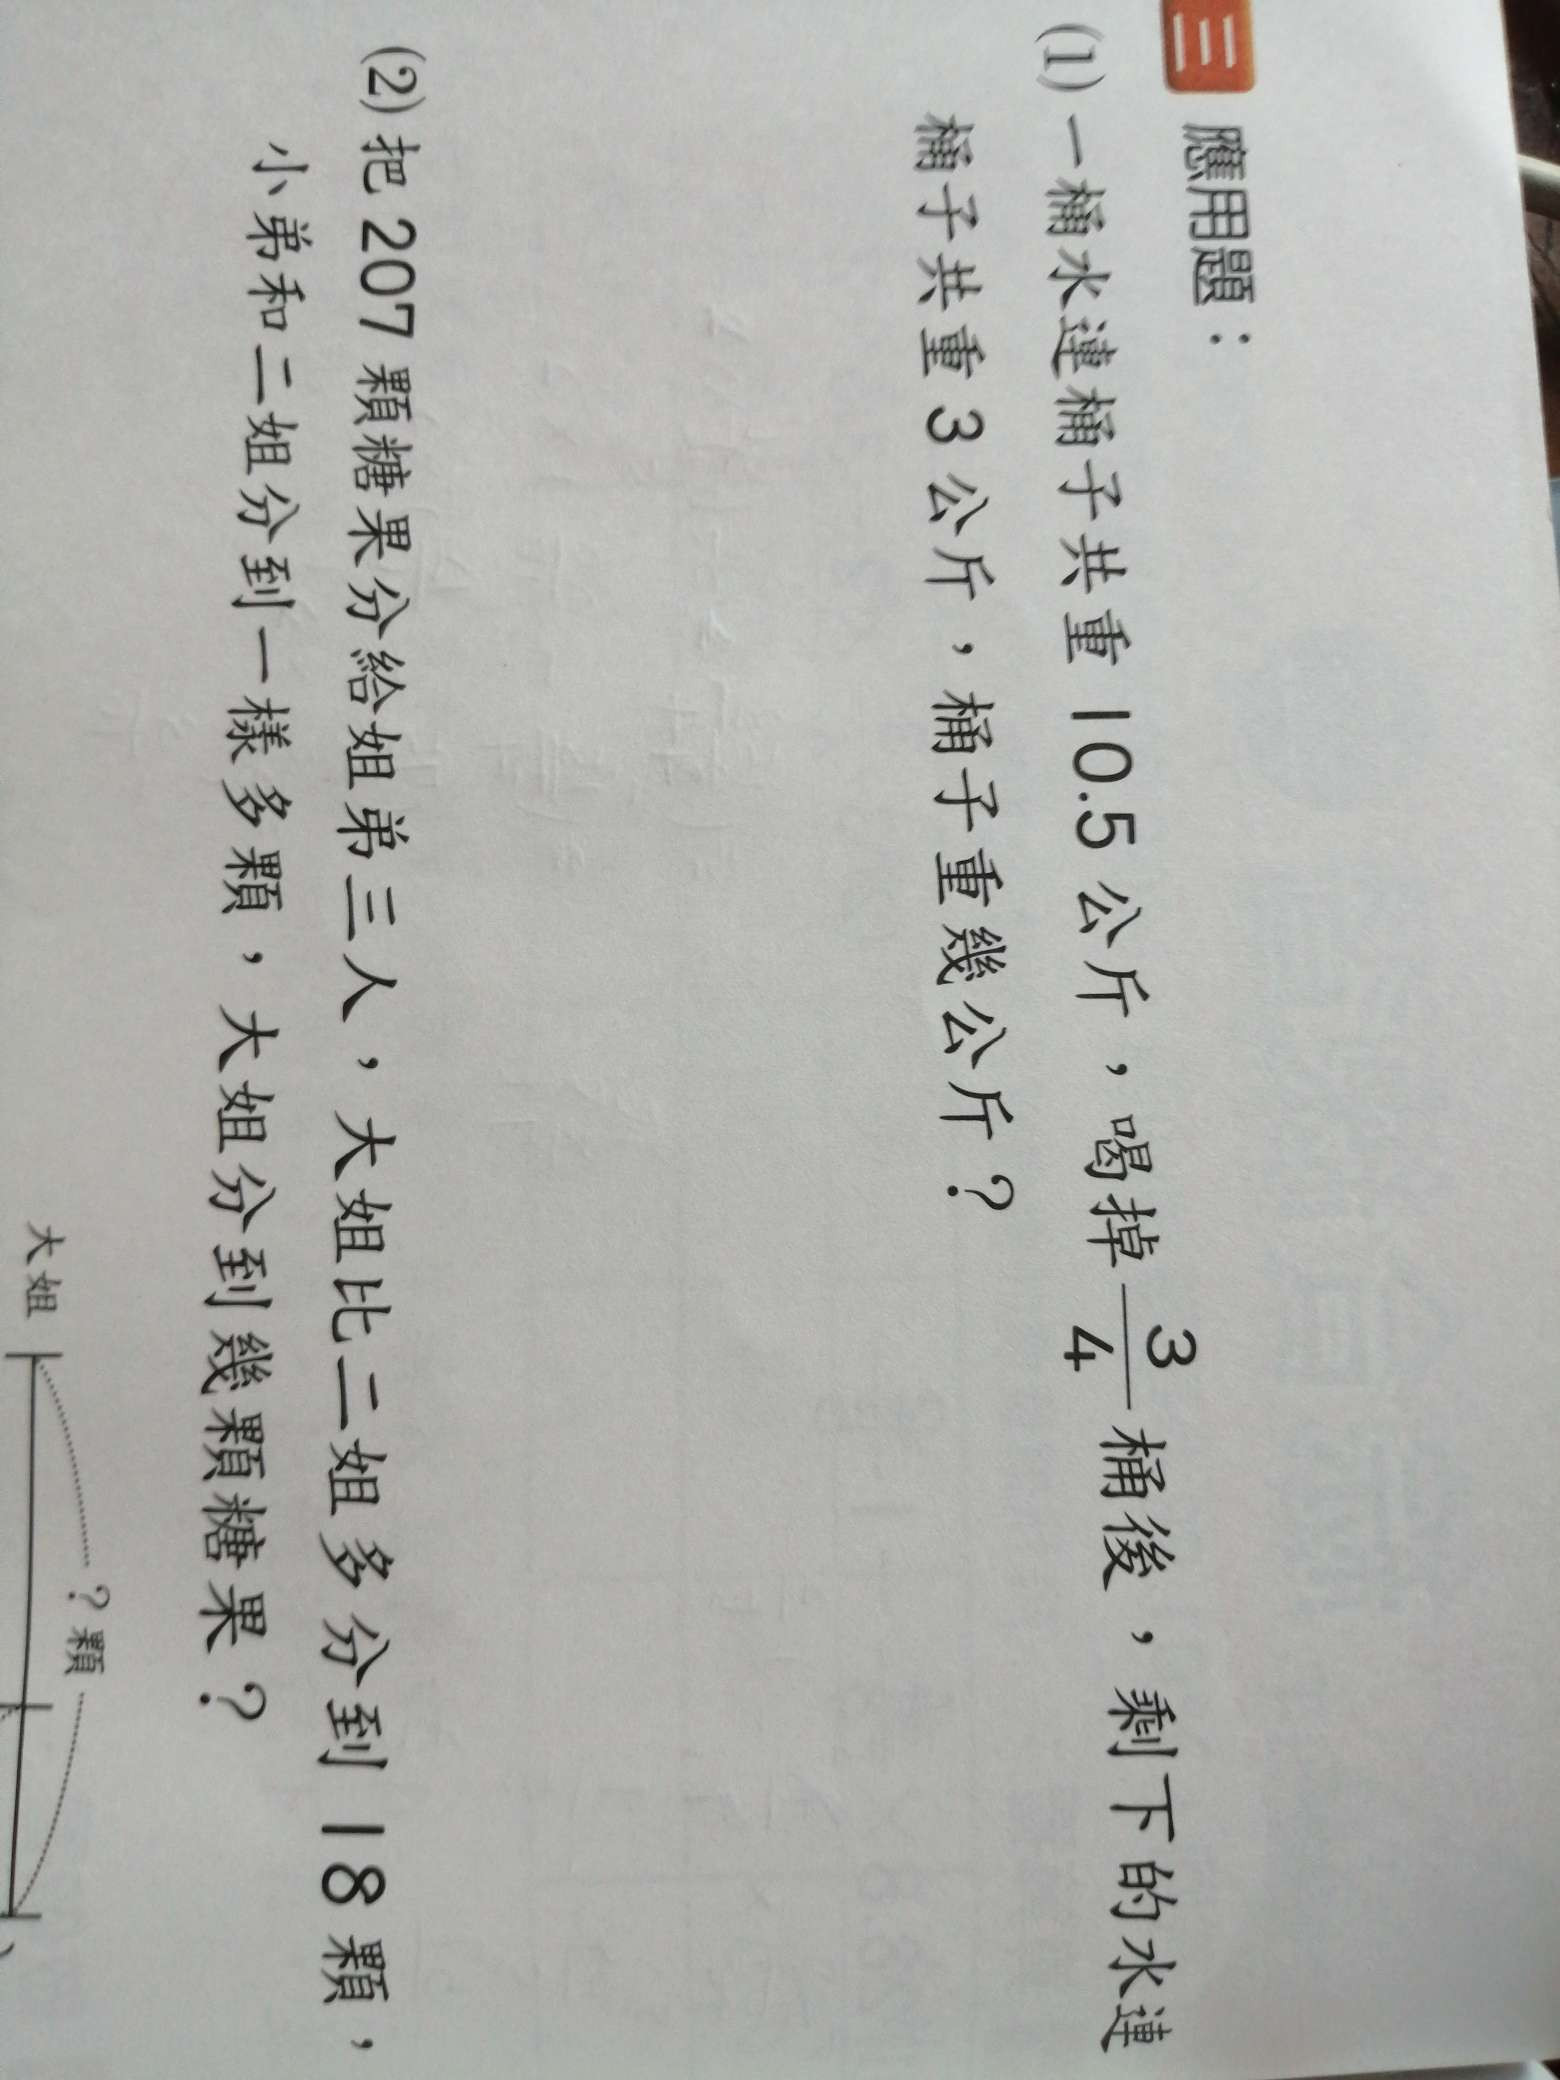 三 應用題：
(1) 一桶水連桶子共重 10.5 公斤，喝掉 3/4 桶後，剩下的水連
桶子共重 3 公斤，桶子重幾公斤？
(2) 把 207 顆糖果分給姐弟三人，大姐比二姐多分到 18 顆，
小弟和二姐分到一樣多顆，大姐分到幾顆糖果？
？顆
大姐